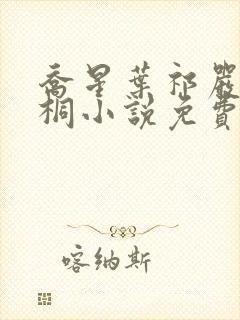 喬星葉祁嚴
桐小說免費
喀納斯